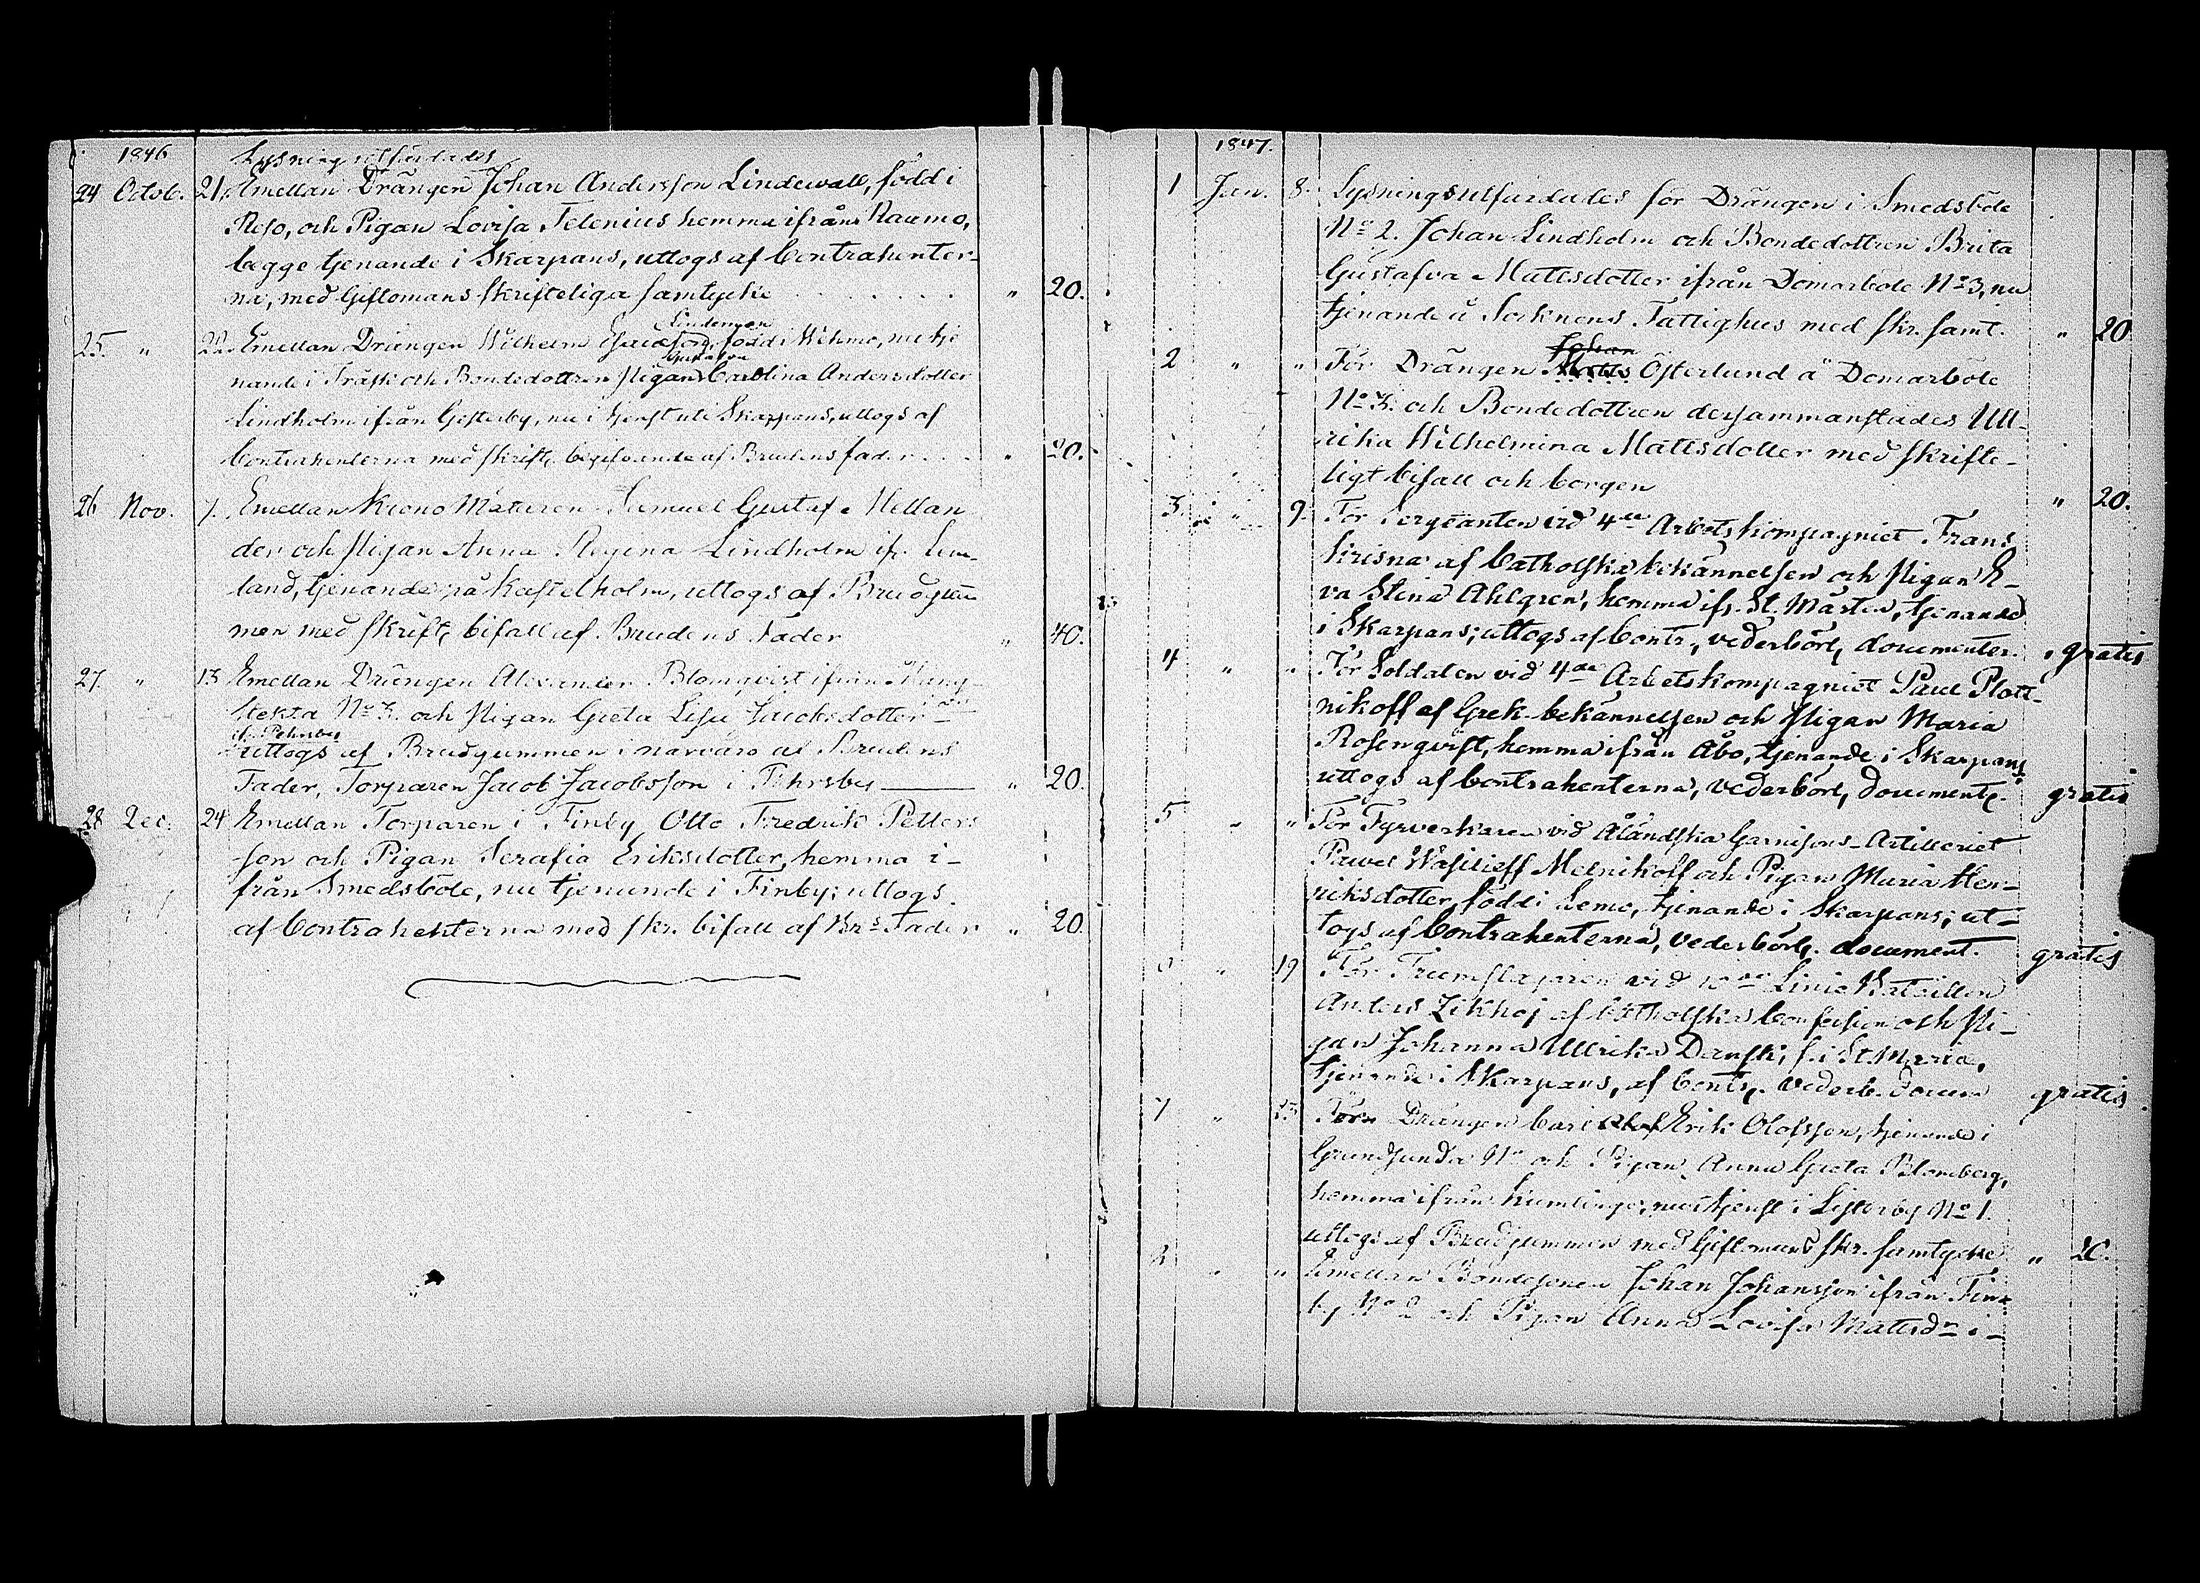 1846
Lysning utfärdades
24 Octob. 21. Emellan Drängen Johan Andersson Lindewall, född i
Reso, och Pigan Lovisa Telenius hemma ifrån Raumo,
begge tjenande i Skarpans, uttogs af Contrahenter-
na, med Giftomans skrifteliga samtycke " 20.
Lindeman
25. " 22. Emellan Drängen Wilhelm född i Wehmo, nu tje
Gustafva
nande i Träsk och Bondedottren Pigan Carolina Andersdotter
Lindholm ifrån Gesterby, nu i tjenst uti Skarpans, uttogs af
Contrahenterna med skriftl. begifvande af Brudens fader " 20.
26 Nov. 7. Emellan Krono Mätaren Samuel Gustaf Mellan
der och Pigan Anna Regina Lindholm ifr. Lem-
land, tjenande på Kastelholm, uttogs af Brudgum
men med skriftl. bifall af Brudens Fader " 40.
27. " 13 Emellan Drängen Alexander Blomqvist ifrån Mång
stekta No 3. och Pigan Greta Lisa Jacobsdotter
ifr. Pehrsby
uttogs af Brudgummen i närvaro af Brudens
Fader, Torparen Jacob Jacobsson i Pehrsby " 20.
28 Dec. 24 Emellan Torparen i Finby Otto Fredrik Petters
son och Pigan Serafia Eriksdotter, hemma i-
från Smedsböle, nu tjenande i Finby; uttogs
af Contrahenterna med skr. bifall af Brs Fader " 20.
1847.
1 Jan. 8. Lysning utfärdades för Drängen i Smedsböle
No 2. Johan Lindholm och Bondedottren Brita
Gustafva Mattsdotter ifrån Domarböle No 3, nu
tjenande å Socknens Fattighus med skr. samt. " 20
Johan
2 " " För Drängen Matts Österlund å Domarböle
No 3. och Bondedottren dersammanstädes Ull-
rika Wilhelmina Mattsdotter med skrifte-
ligt bifall och borgen " 20.
3. " 9. För Sergeanten vid 4de Arbetskompagniet Frans
Krisna af Catholska bekännelsen och Pigan E-
va Stina Ahlgren, hemma ifr. St. Mårten, tjenande
i Skarpans; uttogs af Contr., vederbörl. documenter. " gratis
4 " " För Soldaten vid 4de Arbetskompagniet Paul Plott-
nikoff af Grek. bekännelsen och Pigan Maria
Rosenqvist, hemma ifrån Åbo, tjenande i Skarpans
uttogs af Contrahenterna, vederbörl. document. gratis
5 " " För Fyrverkaren vid Åländska Garnisons-Artilleriet
Pawel Wasilieff Melnikoff och Pigan Maria Hen-
riksdotter, född i Lemo, tjenande i Skarpans; ut-
togs af Contrahenterna, vederbörl. document. gratis
" 19 För Trumslagaren vid 10de Linie Bataillon
Anders Zikhoj af Catholska Confession och Pi-
gan Johanna Ullrika Dansk, f. i St. Maria,
tjenande i Skarpans, af Contr. vederb. docum gratis
7 " 23 För Drängen Carl Erik Olofsson, tjenande i
Grundsunda No och Pigan Anna Greta Blomberg,
hemma ifrån Kumlinge, nu i tjenst i Listerby No 1.
uttogs af Brudgummen med Giftomans skr. samtycke " 20.
" " Emellan Bondesonen Johan Johansson ifrån Fin-
by No 2 och Pigan Anna Lovisa Mattsdr i-